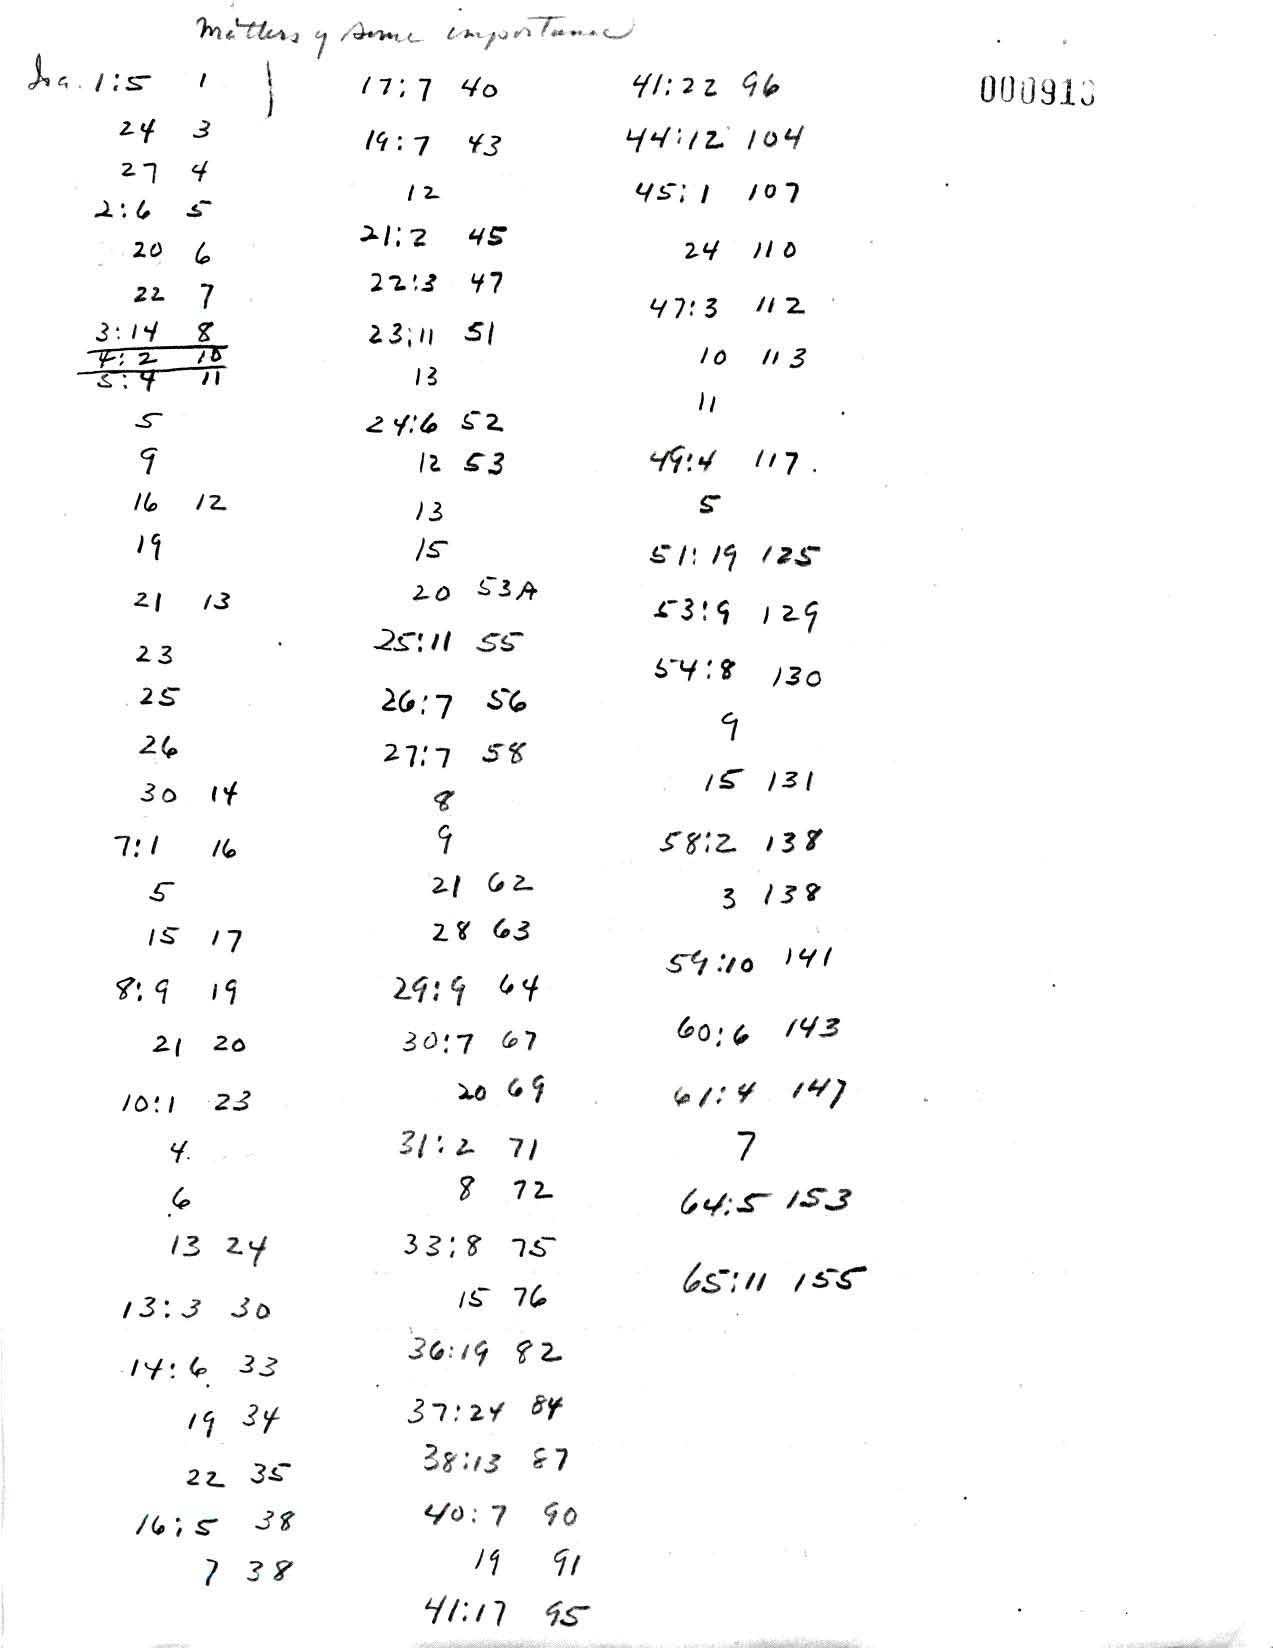 Matters of some importance
000913
Isa. 1:5 1
24 3
27 4
2:6 5
20 6
22 7
3:14 8
4:2 10
5:4 11
5
9
16 12
19
21 13
23
25
26
30 14
7:1 16
5
15 17
8:9 19
21 20
10:1 23
4
6
13 24
13:3 30
14:6 33
19 34
22 35
16:5 38
7 38
17:7 40
19:7 43
12
21:2 45
22:3 47
23:11 51
13
24:6 52
12 53
13
15
20 53A
25:11 55
26:7 56
27:7 58
8
9
21 62
28 63
29:9 64
30:7 67
20 69
31:2 71
8 72
33:8 75
15 76
36:19 82
37:24 84
38:13 87
40:7 90
19 91
41:17 95
41:22 96
44:12 104
45:1 107
24 110
47:3 112
10 113
11
49:4 117.
5
51:19 125
53:9 129
54:8 130
9
15 131
58:2 138
3 138
59:10 141
60:6 143
61:4 147
7
64:5 153
65:11 155